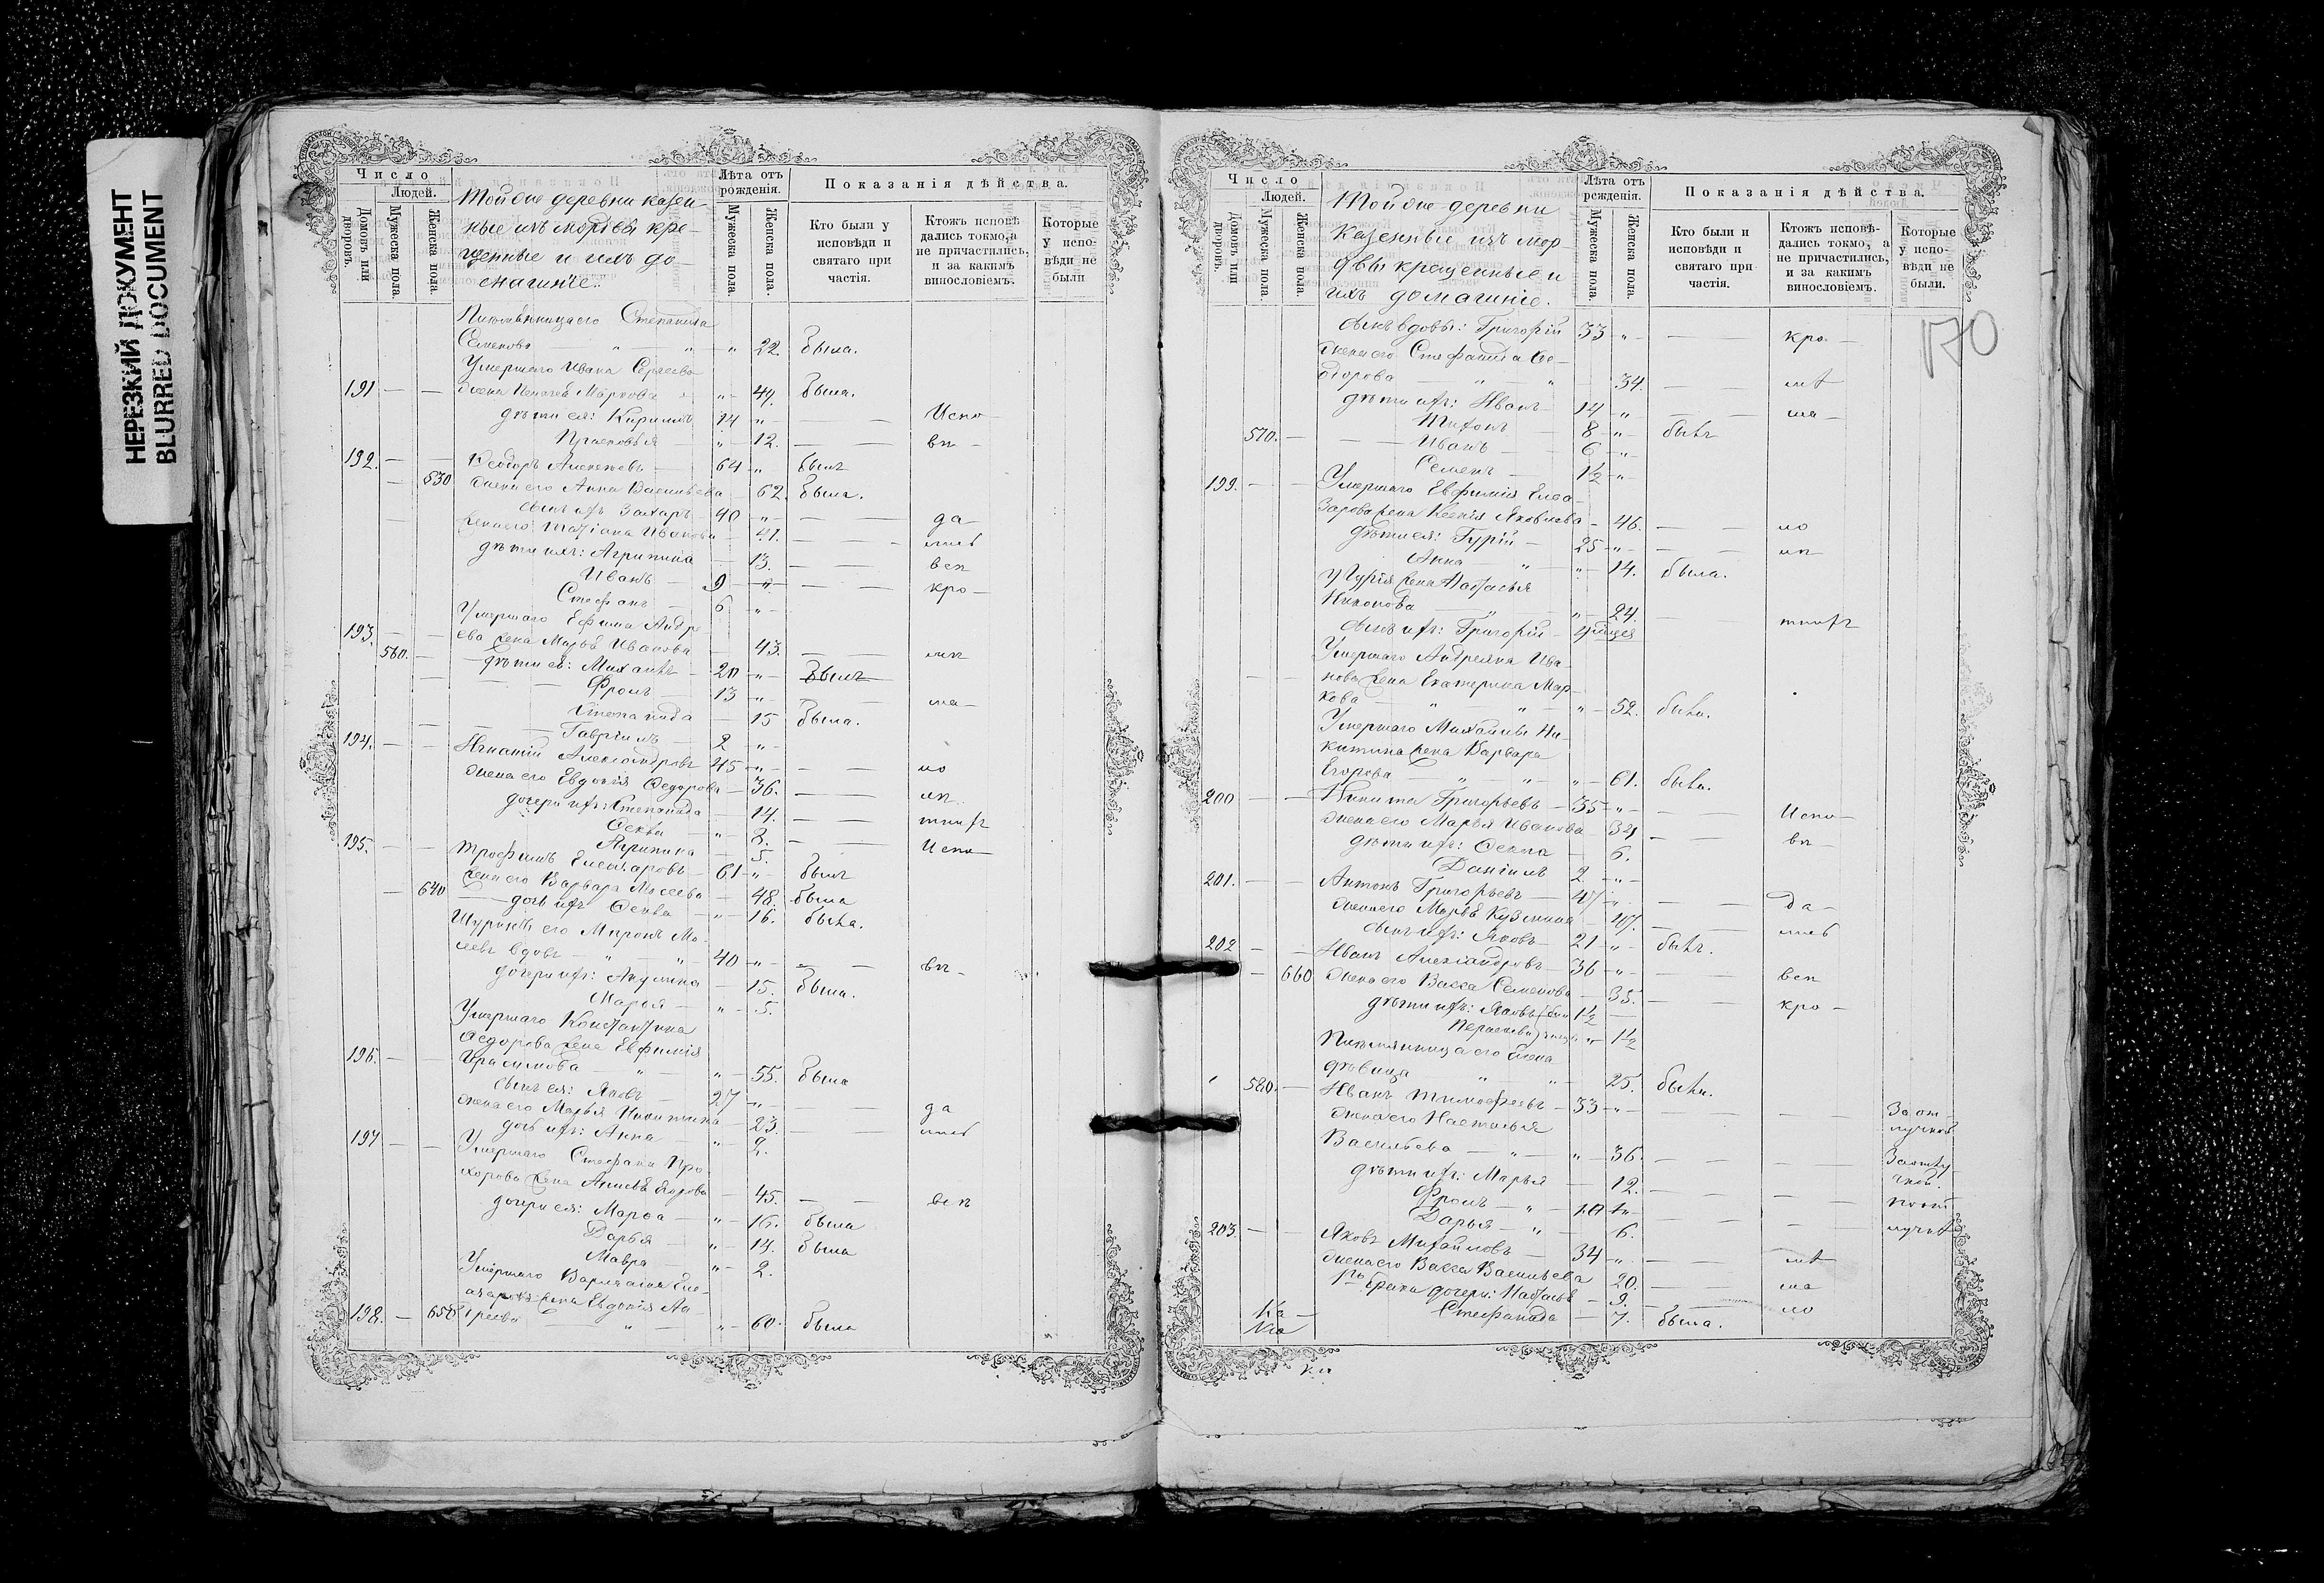 НЕРЕЗКИЙ ДОКУМЕНТ
BLURRED DOCUMENT
Число
Людей.
Домовъ или дворовъ.
Мужеска пола.
Женска пола.
Тойже деревни казен-
ные изъ мордвы кре-
щенные и ихъ до-
машніе.
Лѣта отъ рожденія.
Мужеска пола.
Женска пола.
Показанія дѣйства.
Кто были у исповѣди и святаго при частія.
Ктожъ исповѣ дались токмо, а не причастились, и за какимъ винословіемъ.
Которые у испо- вѣди не были
Племянница его Степанида
Семенова " " " 22. была.
Умершаго Ивана Сергеева
191 жена Пелагея Маркова " 49. была.
дѣти ея: Кирилъ 14 " Испо
Прасковья " 12. вѣ
192. Ѳеодоръ Алексеевъ 64 " былъ
630 жена его Анна Васильева 62. была.
сынъ ихъ Захаръ 40 " да
жена его Татіана Иванова 41.
дѣти ихъ: Агрипина 13. вел
Иванъ 9 " кро
Стефанъ 6 "
Умершаго Ефима Андре
193. ева жена Марья Иванова 43.
560. дѣти ея: Михаилъ 20 " былъ
Фролъ 13 " ма
Степанида 15 была.
Гавріилъ 2 "
194. Игнатій Александровъ 45 " ло
жена его Евдокія Ѳедорова 36.
дочери ихъ: Степанида 14.
Ѳекла " 8. Испо
Агрипина 5.
195. Трофимъ Елеазаровъ 61 " былъ
жена его Варвара 48. была
640 дочь ихъ Ѳекла " 16. была.
Шуринъ его Миронъ Мо-
сеевъ вдовъ " 40 " вѣ
дочери ихъ: Акулина 15. была.
Марья " 5.
Умершаго Константина
Ѳедорова жена Евфимія
196. Герасимова " " 55. была
сынъ ея: Яковъ 27 " да
жена его Марья Никитина 23.
дочь ихъ: Анна " 2.
197 Умершаго Стефана Про-
хорова жена Анисья Егорова 45. вел
дочери ея: Марѳа " 16. была
Дарья " 14. была
Мавра " 2.
Умершаго Варлаама Еле-
азарова жена Евдокія Ан-
198. 650 дреева " " 60. была
Число
Людей.
Домовъ или дворовъ.
Мужеска пола.
Женска пола.
Тойже деревни
казенные изъ мор-
двы крещенные и
ихъ домашніе.
Лѣта отъ рсжденія.
Мужеска пола.
Женска пола.
Показанія дѣйства.
Кто были и исповѣди и святаго при частія.
Ктожъ исповѣ- дались токмо, а не причастились, и за какимъ винословіемъ.
Которые у испо- вѣди не были.
170
сынъ вдовы: Григорій 33 " кро
жена его Стефанида Ѳе-
дорова " " 34.
дѣти ихъ: Иванъ 14 " ма
Тихонъ 8 " былъ
570. Иванъ 6 "
Семенъ 1½ "
199. Умершаго Евфимія Елеа-
зарова жена Ксенія Яковлева 46. ло
дѣти ея: Гурій 25 "
Анна " " 14. была.
у Гурія жена Настасья
Никонова " " 24.
сынъ ихъ: Григорій
Умершаго Андреяна Ива-
нова жена Екатерина Мар-
кова " " " 52. была.
Умершаго Михаилы Ни-
китина жена Варвара
Егорова " " " 61. была.
200 Никита Григорьевъ 35 " Испо
жена его Марья Иванова 34 вѣ
дѣти ихъ: Ѳекла 6.
Даніилъ 2 "
201. Антонъ Григорьевъ 47 " да
жена его Марья Кузмина 47.
сынъ ихъ: Яковъ 21 " былъ.
202 Иванъ Александровъ 36 " вел
660 жена его Васса Семенова 35. кро
дѣти ихъ: Яковъ 1½
" 1½
Племянница его Елена
дѣвица " " 25. была.
580. Иванъ Тимофеевъ 33 " За от-
жена его Настасья лучкой
Васильева " " 36. За отлу
дѣти ихъ: Марья 12. чкой.
Фролъ " 10 "
Дарья " 6.
203. Яковъ Михайловъ 34 "
жена его Васса Васильева 20. ма
брака дочери: Настасья 9. ло
Стефанида 7. была.